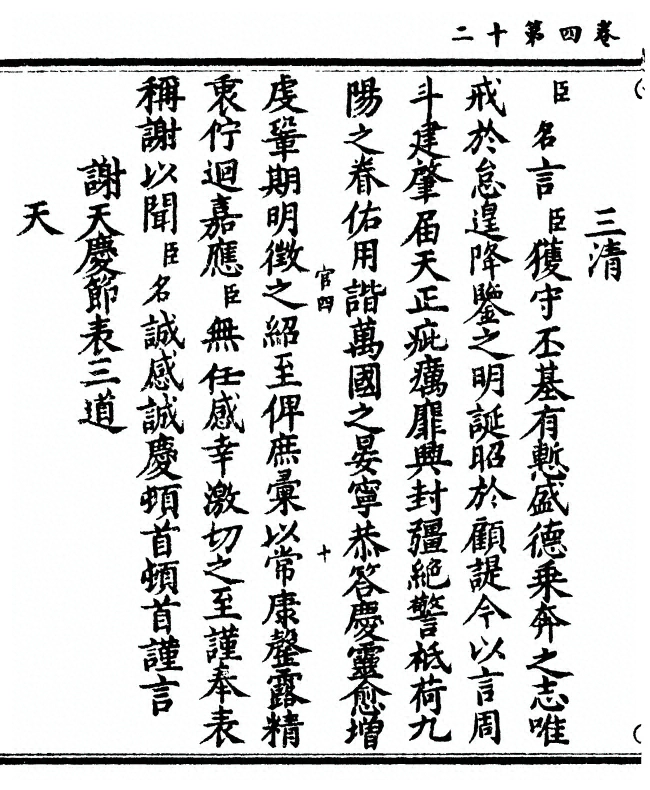 卷四第十二
三清
臣名言臣獲守丕基有慙盛德乗奔之志唯
戒於怠遑降鑒之明誕昭於顧諟今以言周
斗建肇届天正疵癘靡興封疆絶警祗荷九
陽之眷佑用諧萬國之晏寧恭答慶靈愈增
官四
十
虔鞏期明徵之紹至俾庶彙以常康罄露精
衷佇迴嘉應臣無任感幸激切之至謹奉表
稱謝以聞臣名誠感誠慶頓首頓首謹言
謝天慶節表三道
天